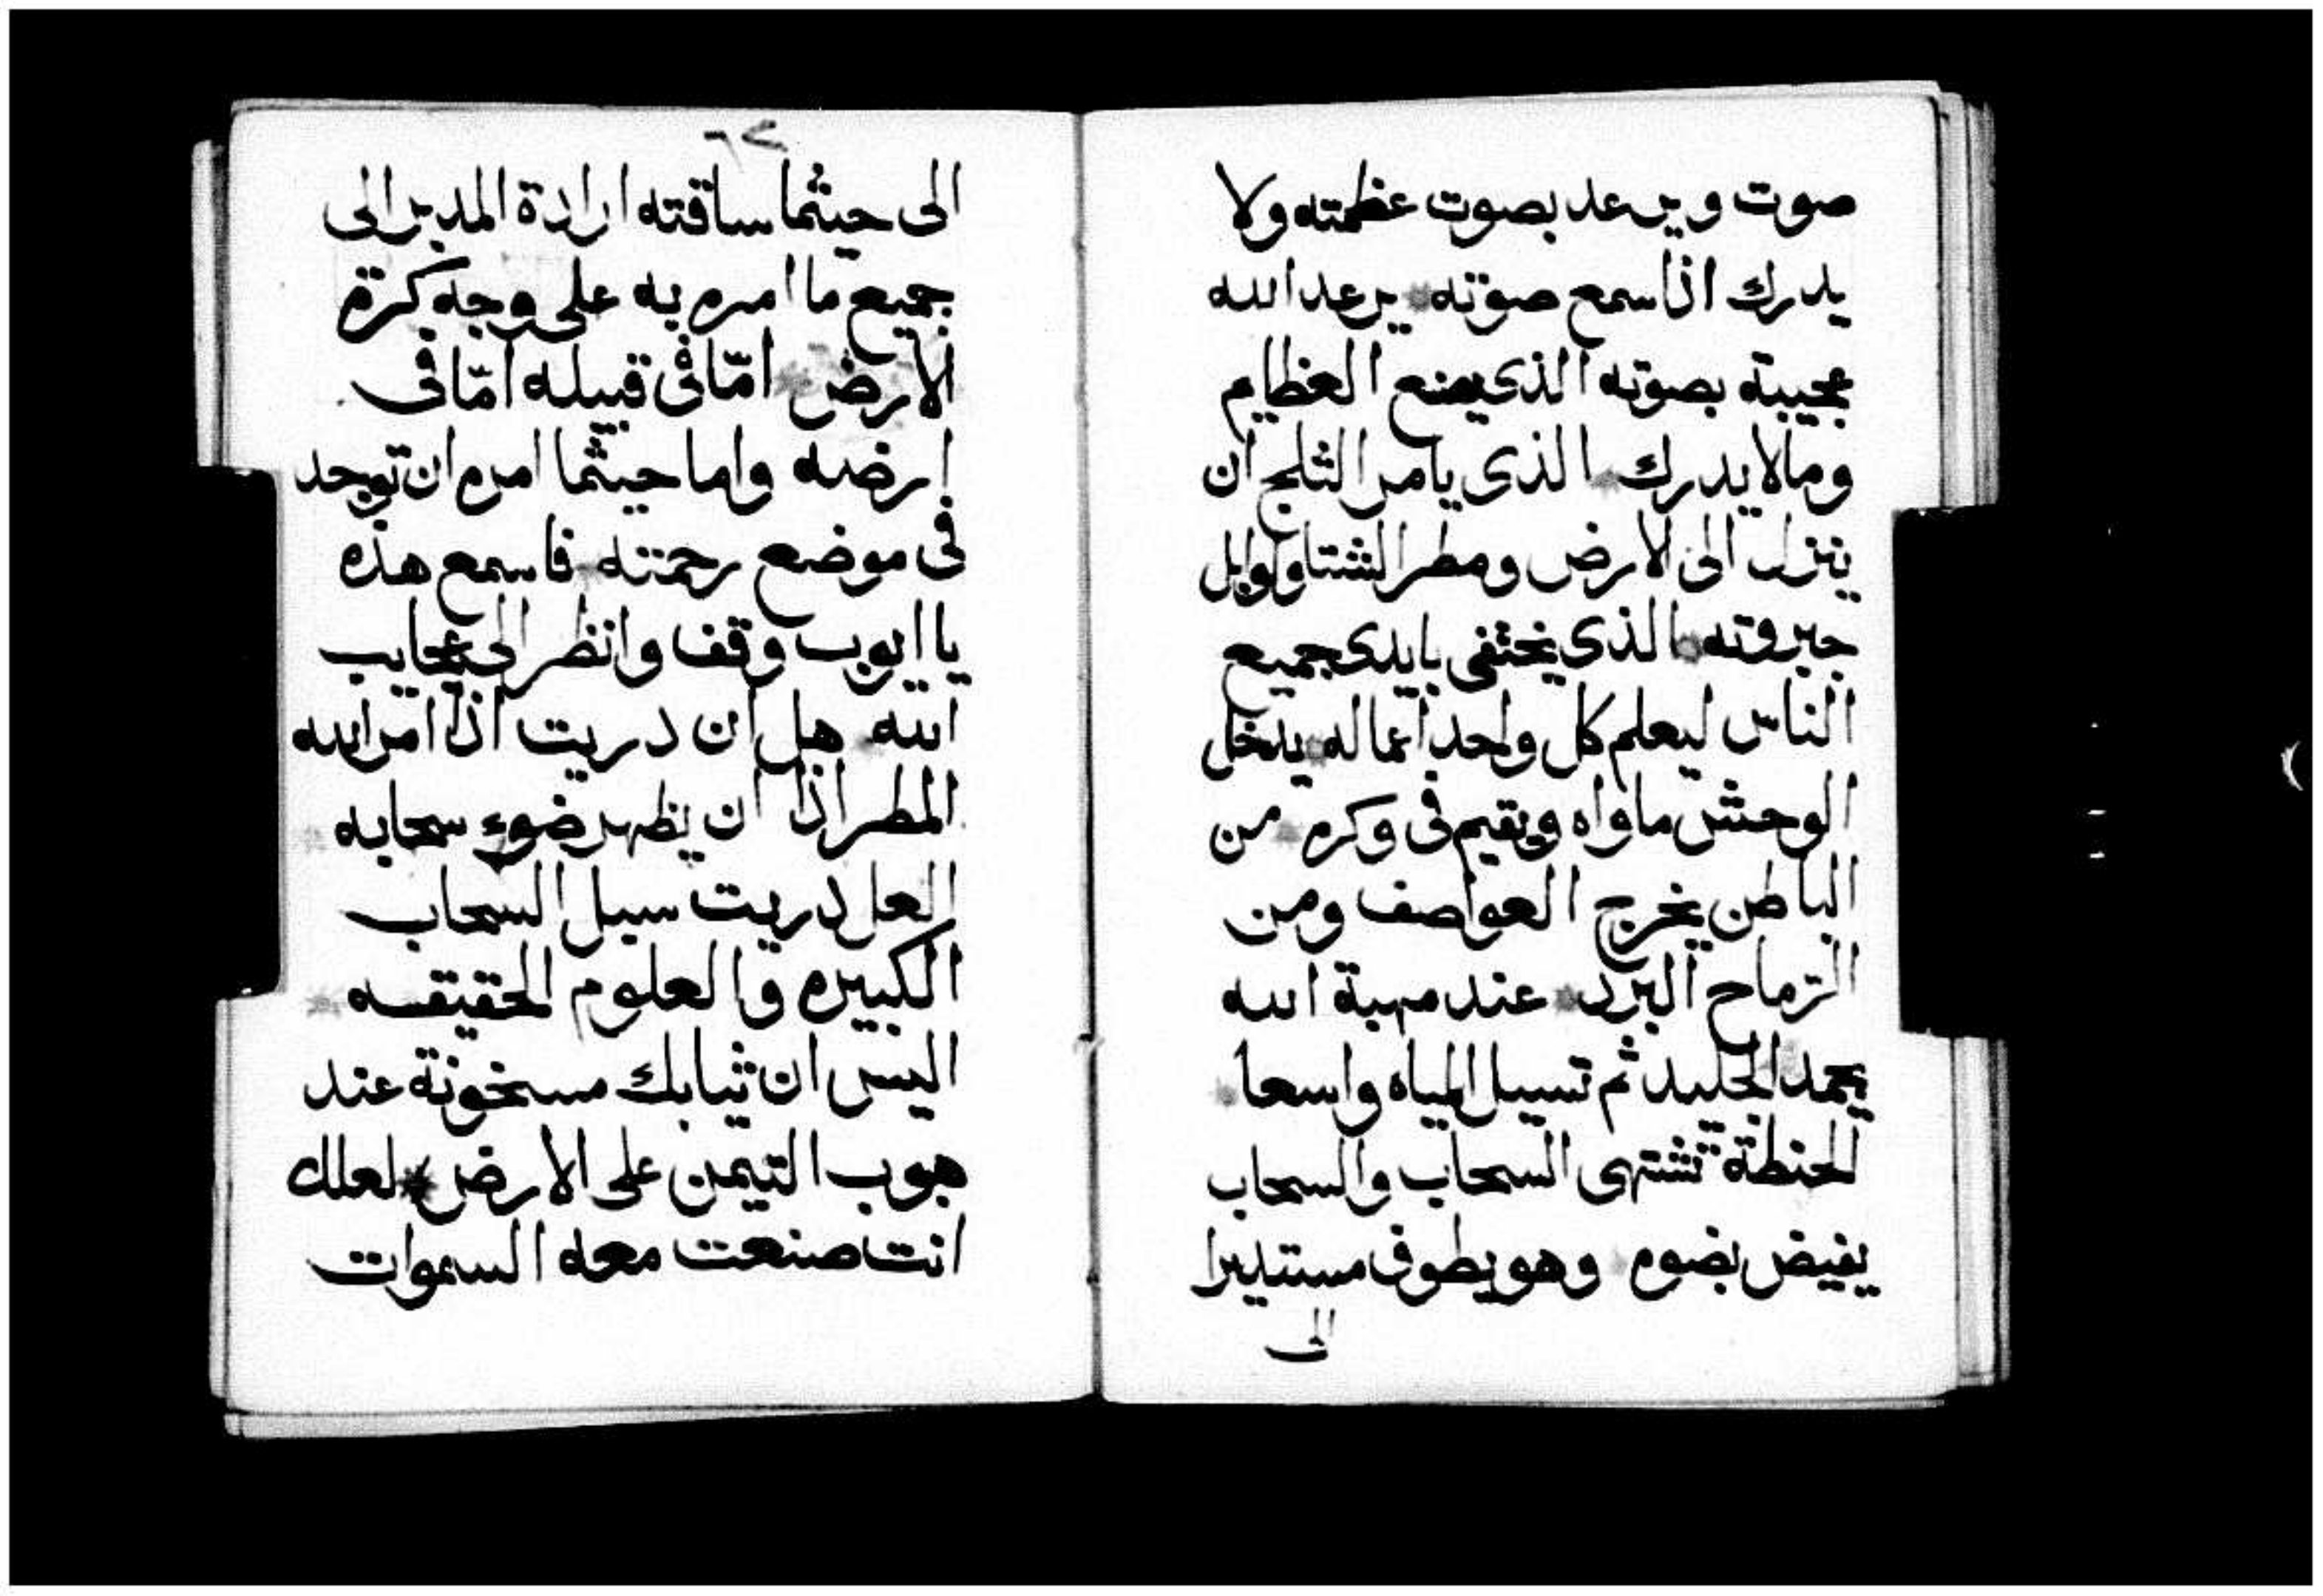 صوت ويرعد بصوت عظمته ولا
يدرك اذا سمع صوته يرعد الله
عجيبة بصوته الذى يصنع العظايم
ومالا يدرك الذى يامر الثلج ان
ينزل الى الارض ومطر الشتا ولوبل
جبروته الذى يختفى بايدى جميع
الناس ليعلم كل واحد اعماله يدخل
الوحش ماواه ويقيم فى وكره من
الباطن يخرج العواصف ومن
الرماح البرد عند مهبة الله
يجمد الجليد ثم تسيل المياه واسعا
الحنطة تشتهى السحاب والسحاب
يفيض بضوه وهو يطوف مستديرا
الى
٦٢
الى حيثما ساقته ارادة المدبر الى
جميع ما امره به على وجه كرة
الارض امّا فى قبيله امّا فى
ارضه واما حيثما امره ان توجد
فى موضع رحمته فاسمع هذه
يا ايوب وقف وانظر الى عجايب
الله هل ان دريت اذا امر الله
المطر اذا ان يظهر ضوء سحابه
العل دريت سبل السحاب
الكبيره والعلوم الحقيقسه
اليس ان ثيابك مسخونة عند
هبوب التيمن على الارض لعلك
انت صنعت معه السموات